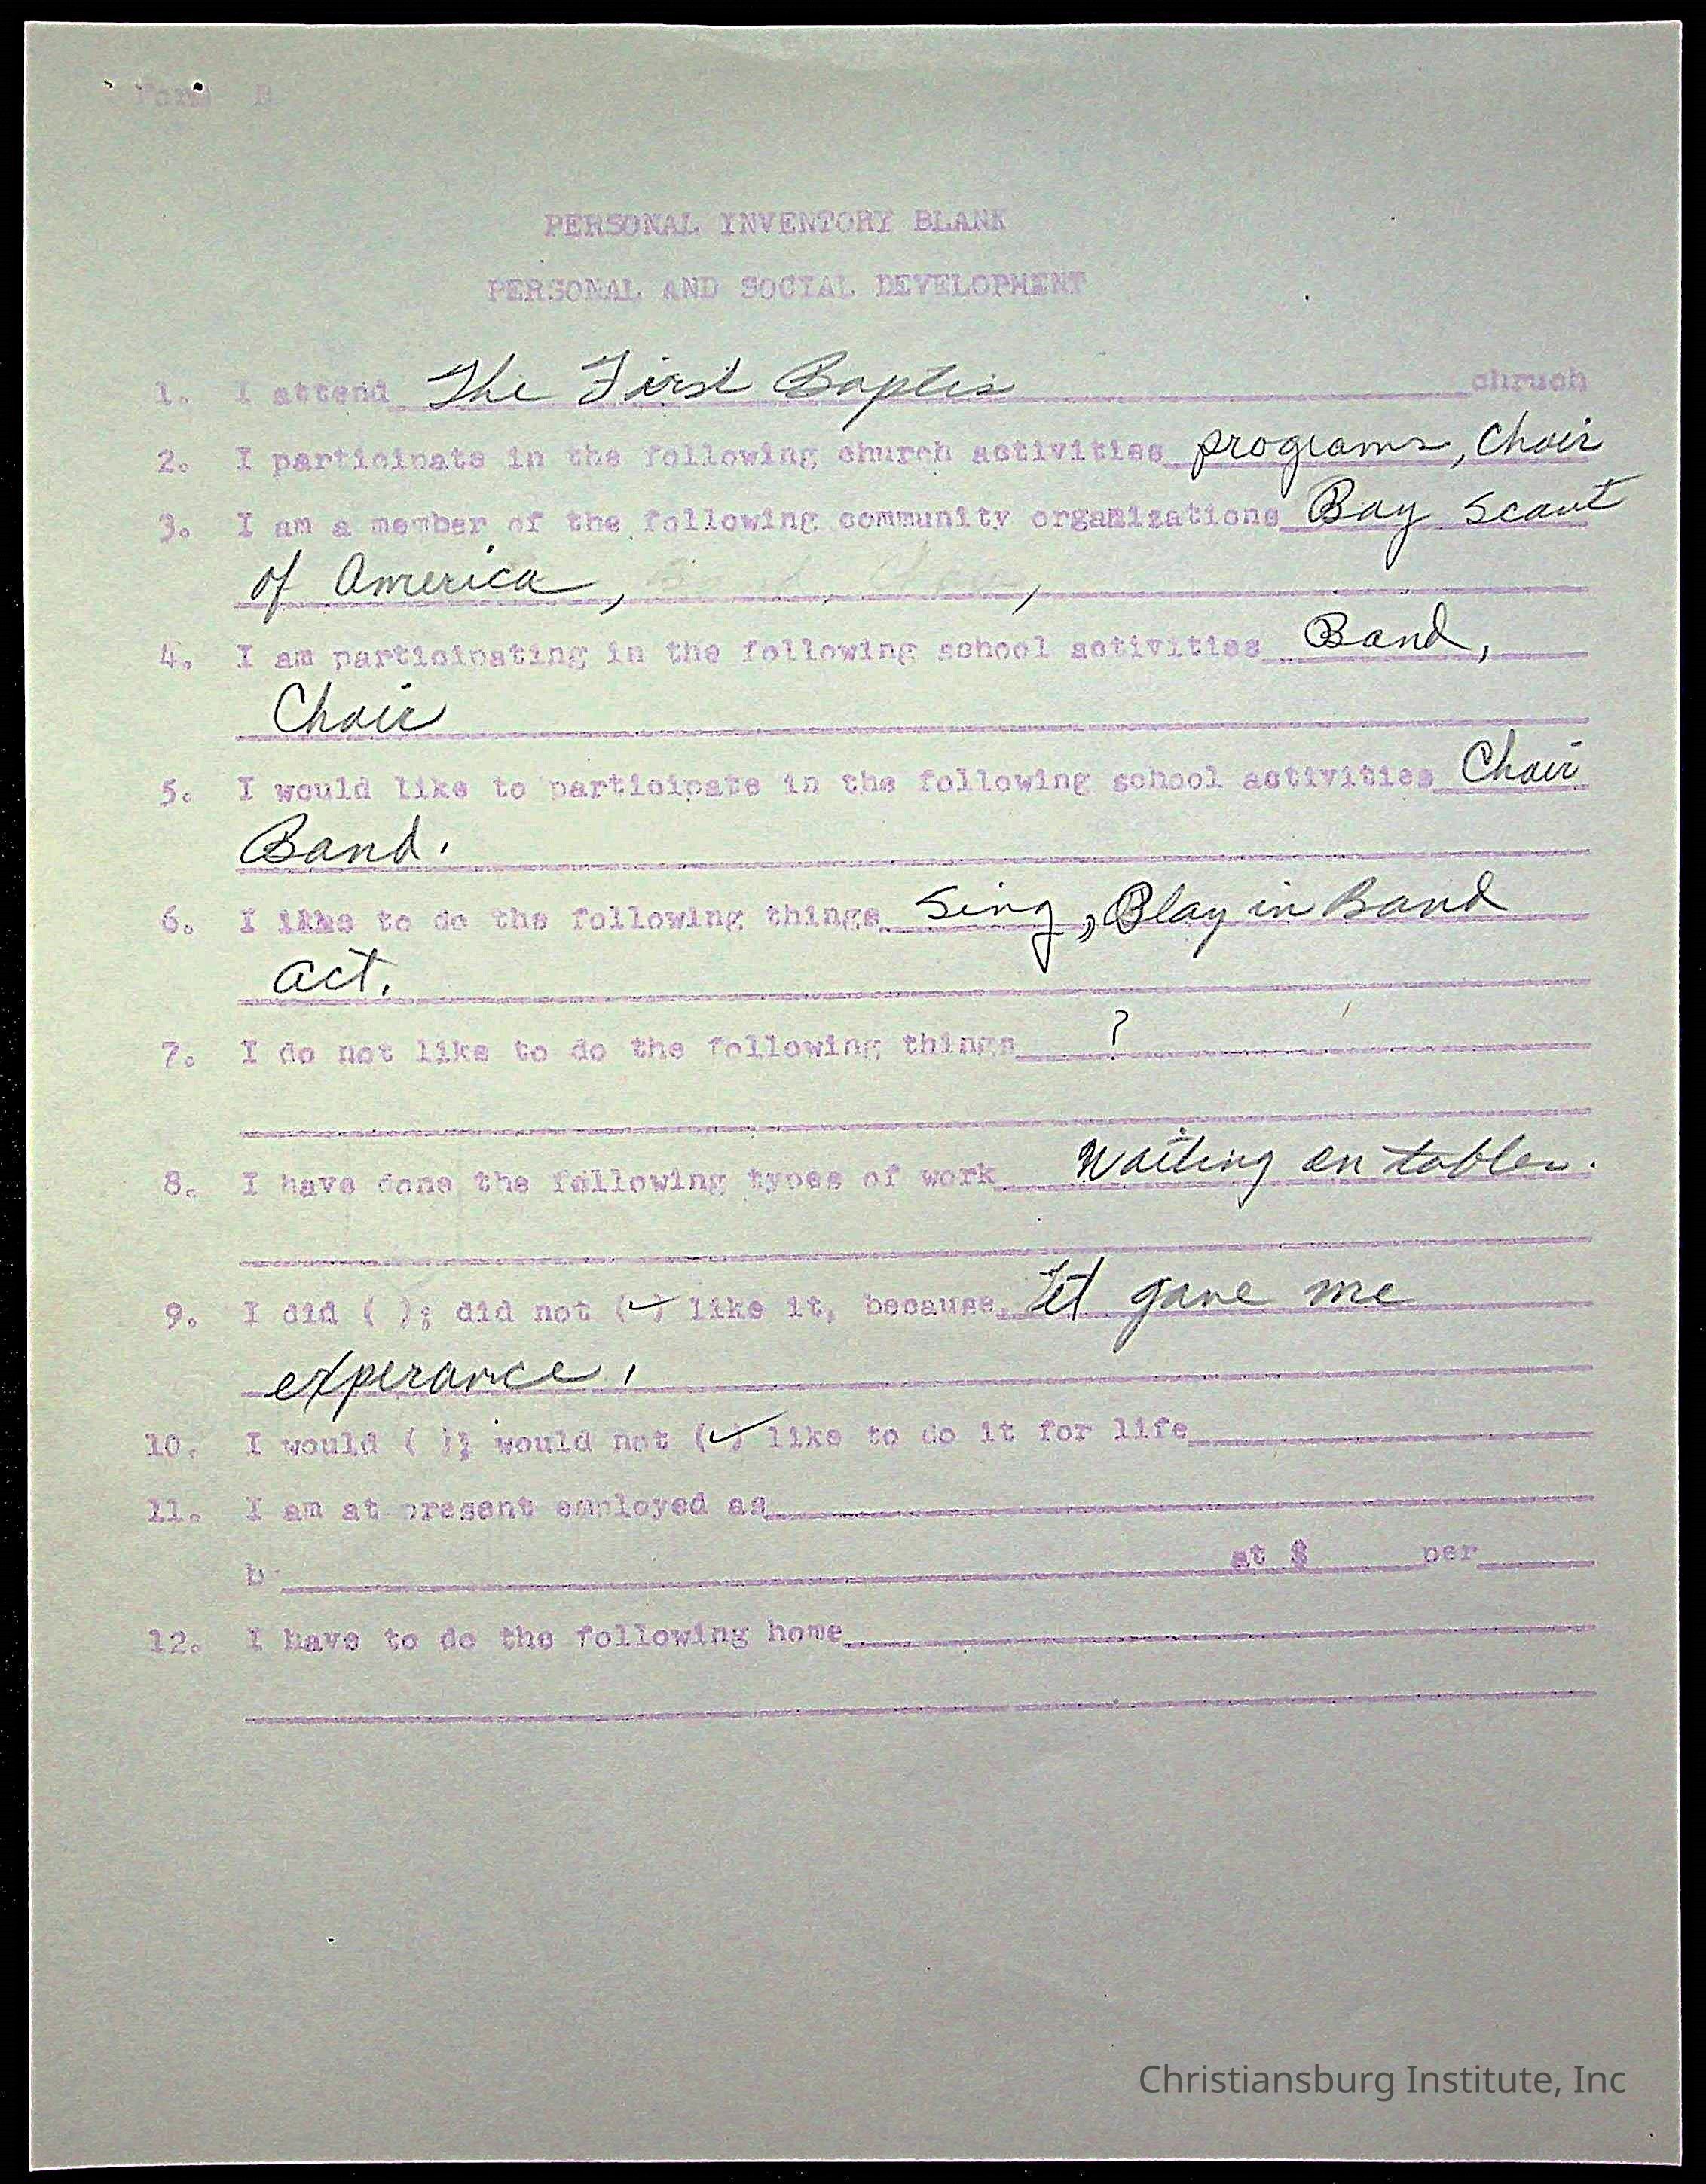 Form B
PERSONAL INVENTORY BLANK
PERSONAL AND SOCIAL DEVELOPMENT
1. I attend The First Baptis chruch
2. I participate in the following church activities programs, Choir
3. I am a member of the following community organizations Boy Scout
of America, ,
4. I am participating in the following school activities Band,
Choir
5. I would like to participate in the following school activities Choir
Band.
6. I like to do the following things Sing, Play in Band
act.
7. I do not like to do the following things ?
8. I have done the following types of work Waiting on tables.
9. I did ( ); did not (✓) like it, because It gave me
experance.
10. I would ( ); would not (✓) like to do it for life
11. I am at present employed as
b at $ per
12. I have to do the following home
Christiansburg Institute, Inc